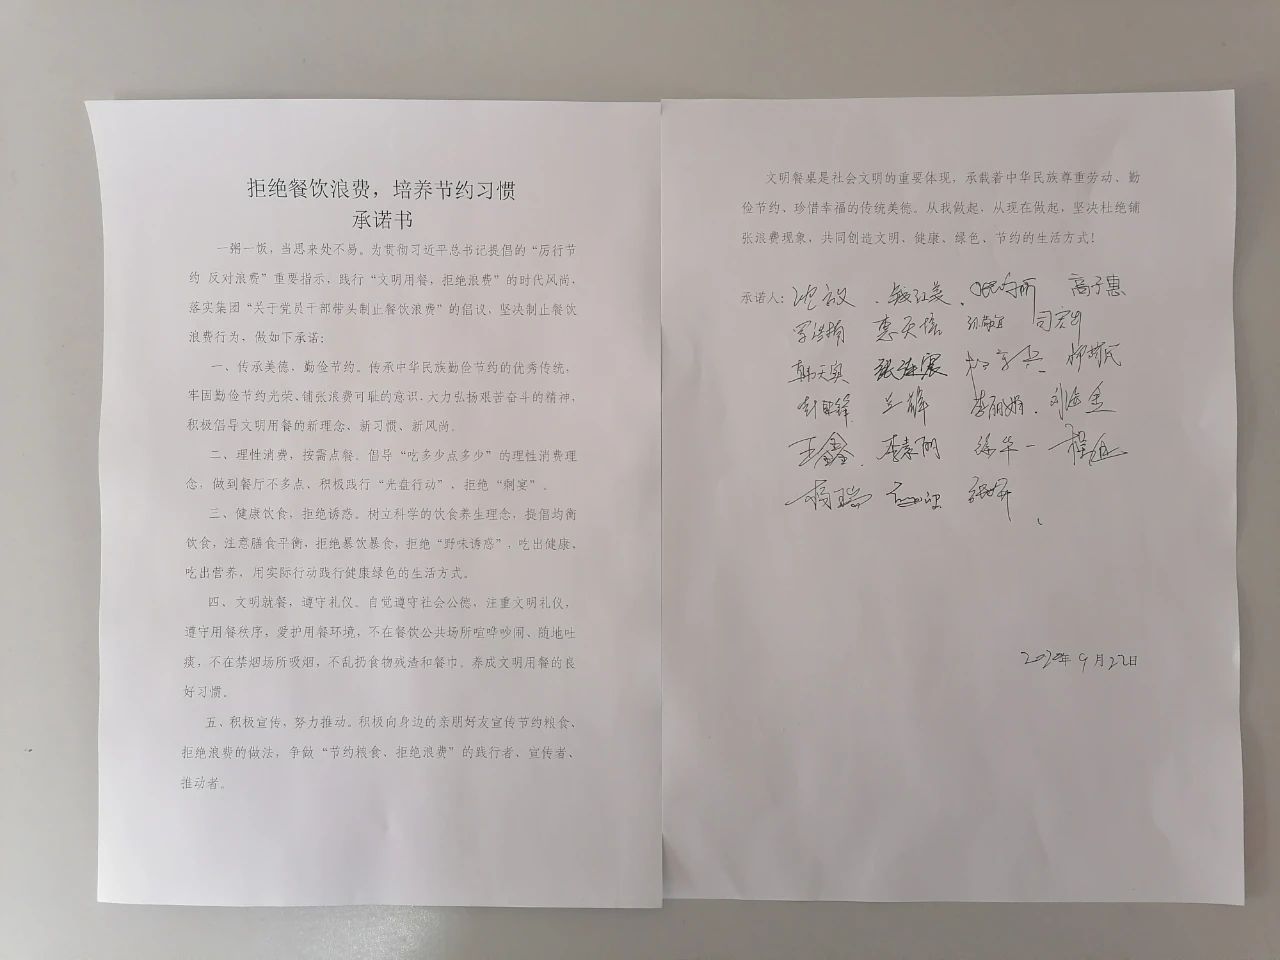 拒绝餐饮浪费，培养节约习惯
承诺书
一粥一饭，当思来处不易。为贯彻习近平总书记提倡的“厉行节
约 反对浪费”重要指示，践行“文明用餐，拒绝浪费”的时代风尚，
落实集团“关于党员干部带头制止餐饮浪费”的倡议，坚决制止餐饮
浪费行为，做如下承诺：
一、传承美德，勤俭节约。传承中华民族勤俭节约的优秀传统，
牢固勤俭节约光荣、铺张浪费可耻的意识，大力弘扬艰苦奋斗的精神，
积极倡导文明用餐的新理念、新习惯、新风尚。
二、理性消费，按需点餐。倡导“吃多少点多少”的理性消费理
念，做到餐厅不多点、积极践行“光盘行动”、拒绝“剩宴”。
三、健康饮食，拒绝诱惑。树立科学的饮食养生理念，提倡均衡
饮食，注意膳食平衡，拒绝暴饮暴食，拒绝“野味诱惑”，吃出健康，
吃出营养，用实际行动践行健康绿色的生活方式。
四、文明就餐，遵守礼仪。自觉遵守社会公德，注重文明礼仪，
遵守用餐秩序，爱护用餐环境，不在餐饮公共场所喧哗吵闹、随地吐
痰，不在禁烟场所吸烟，不乱扔食物残渣和餐巾。养成文明用餐的良
好习惯。
五、积极宣传，努力推动。积极向身边的亲朋好友宣传节约粮食、
拒绝浪费的做法，争做“节约粮食、拒绝浪费”的践行者、宣传者、
推动者。
文明餐桌是社会文明的重要体现，承载着中华民族尊重劳动、勤
俭节约、珍惜幸福的传统美德。从我做起，从现在做起，坚决杜绝铺
张浪费现象，共同创造文明、健康、绿色、节约的生活方式！
承诺人： 高子惠
惠天培
韩天奥
李丽娟
王鑫 李素丽
杨瑞
2020年9月22日